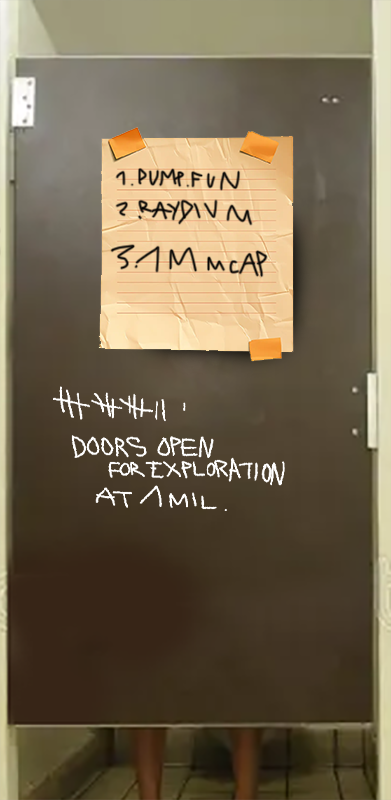 1. PUMP.FUN
2. RAYDIUM
3. 1M mcAP
DOORS OPEN
FOR EXPLORATION
AT 1 MIL.